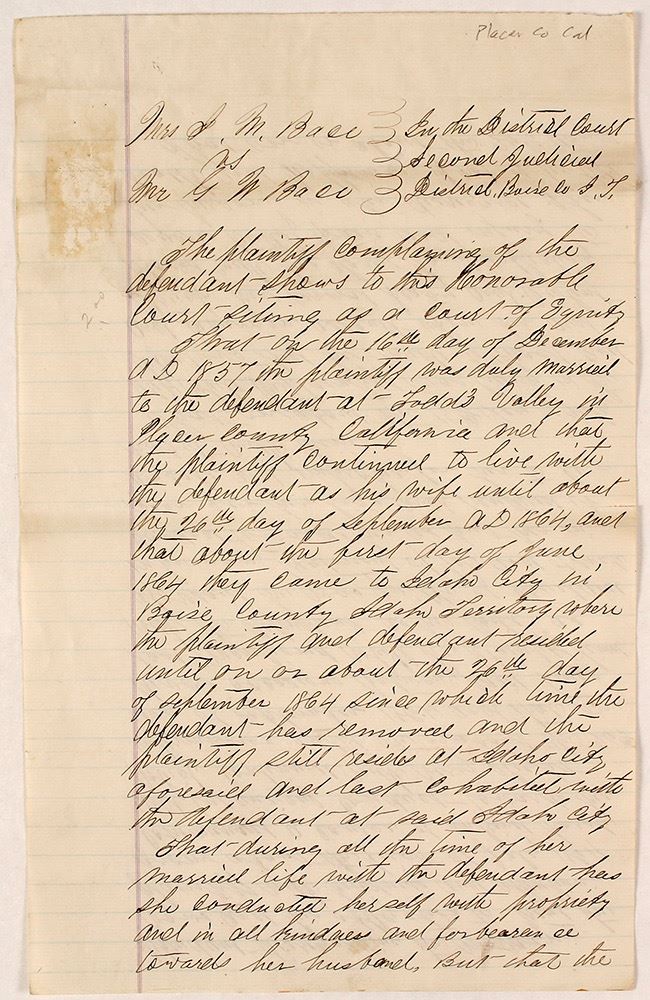 Placer Co Cal
Mrs I. M. Bace In the District Court
vs Second Judicial
Mr G W Bace District, Boise Co I. T.
The plaintiff complaining of the
defendant shows to this Honorable
Court sitting as a court of Equity
That on the 16th day of December
A D 1857 the plaintiff was duly married
to the defendant at Todd's Valley in
Placer County California and that
the plaintiff continued to live with
the defendant as his wife until about
the 26th day of September A D 1864, and
that about the first day of June
1864 they came to Idaho City in
Boise County Idaho Territory where
the plaintiff and defendant resided
until on or about the 26th day
of September 1864 since which time the
defendant has removed and the
plaintiff still resides at Idaho City
aforesaid and last cohabited with
the defendant at said Idaho City
That during all the time of her
married life with the defendant has
she conducted herself with propriety
and in all kindness and forbearance
towards her husband, But that the